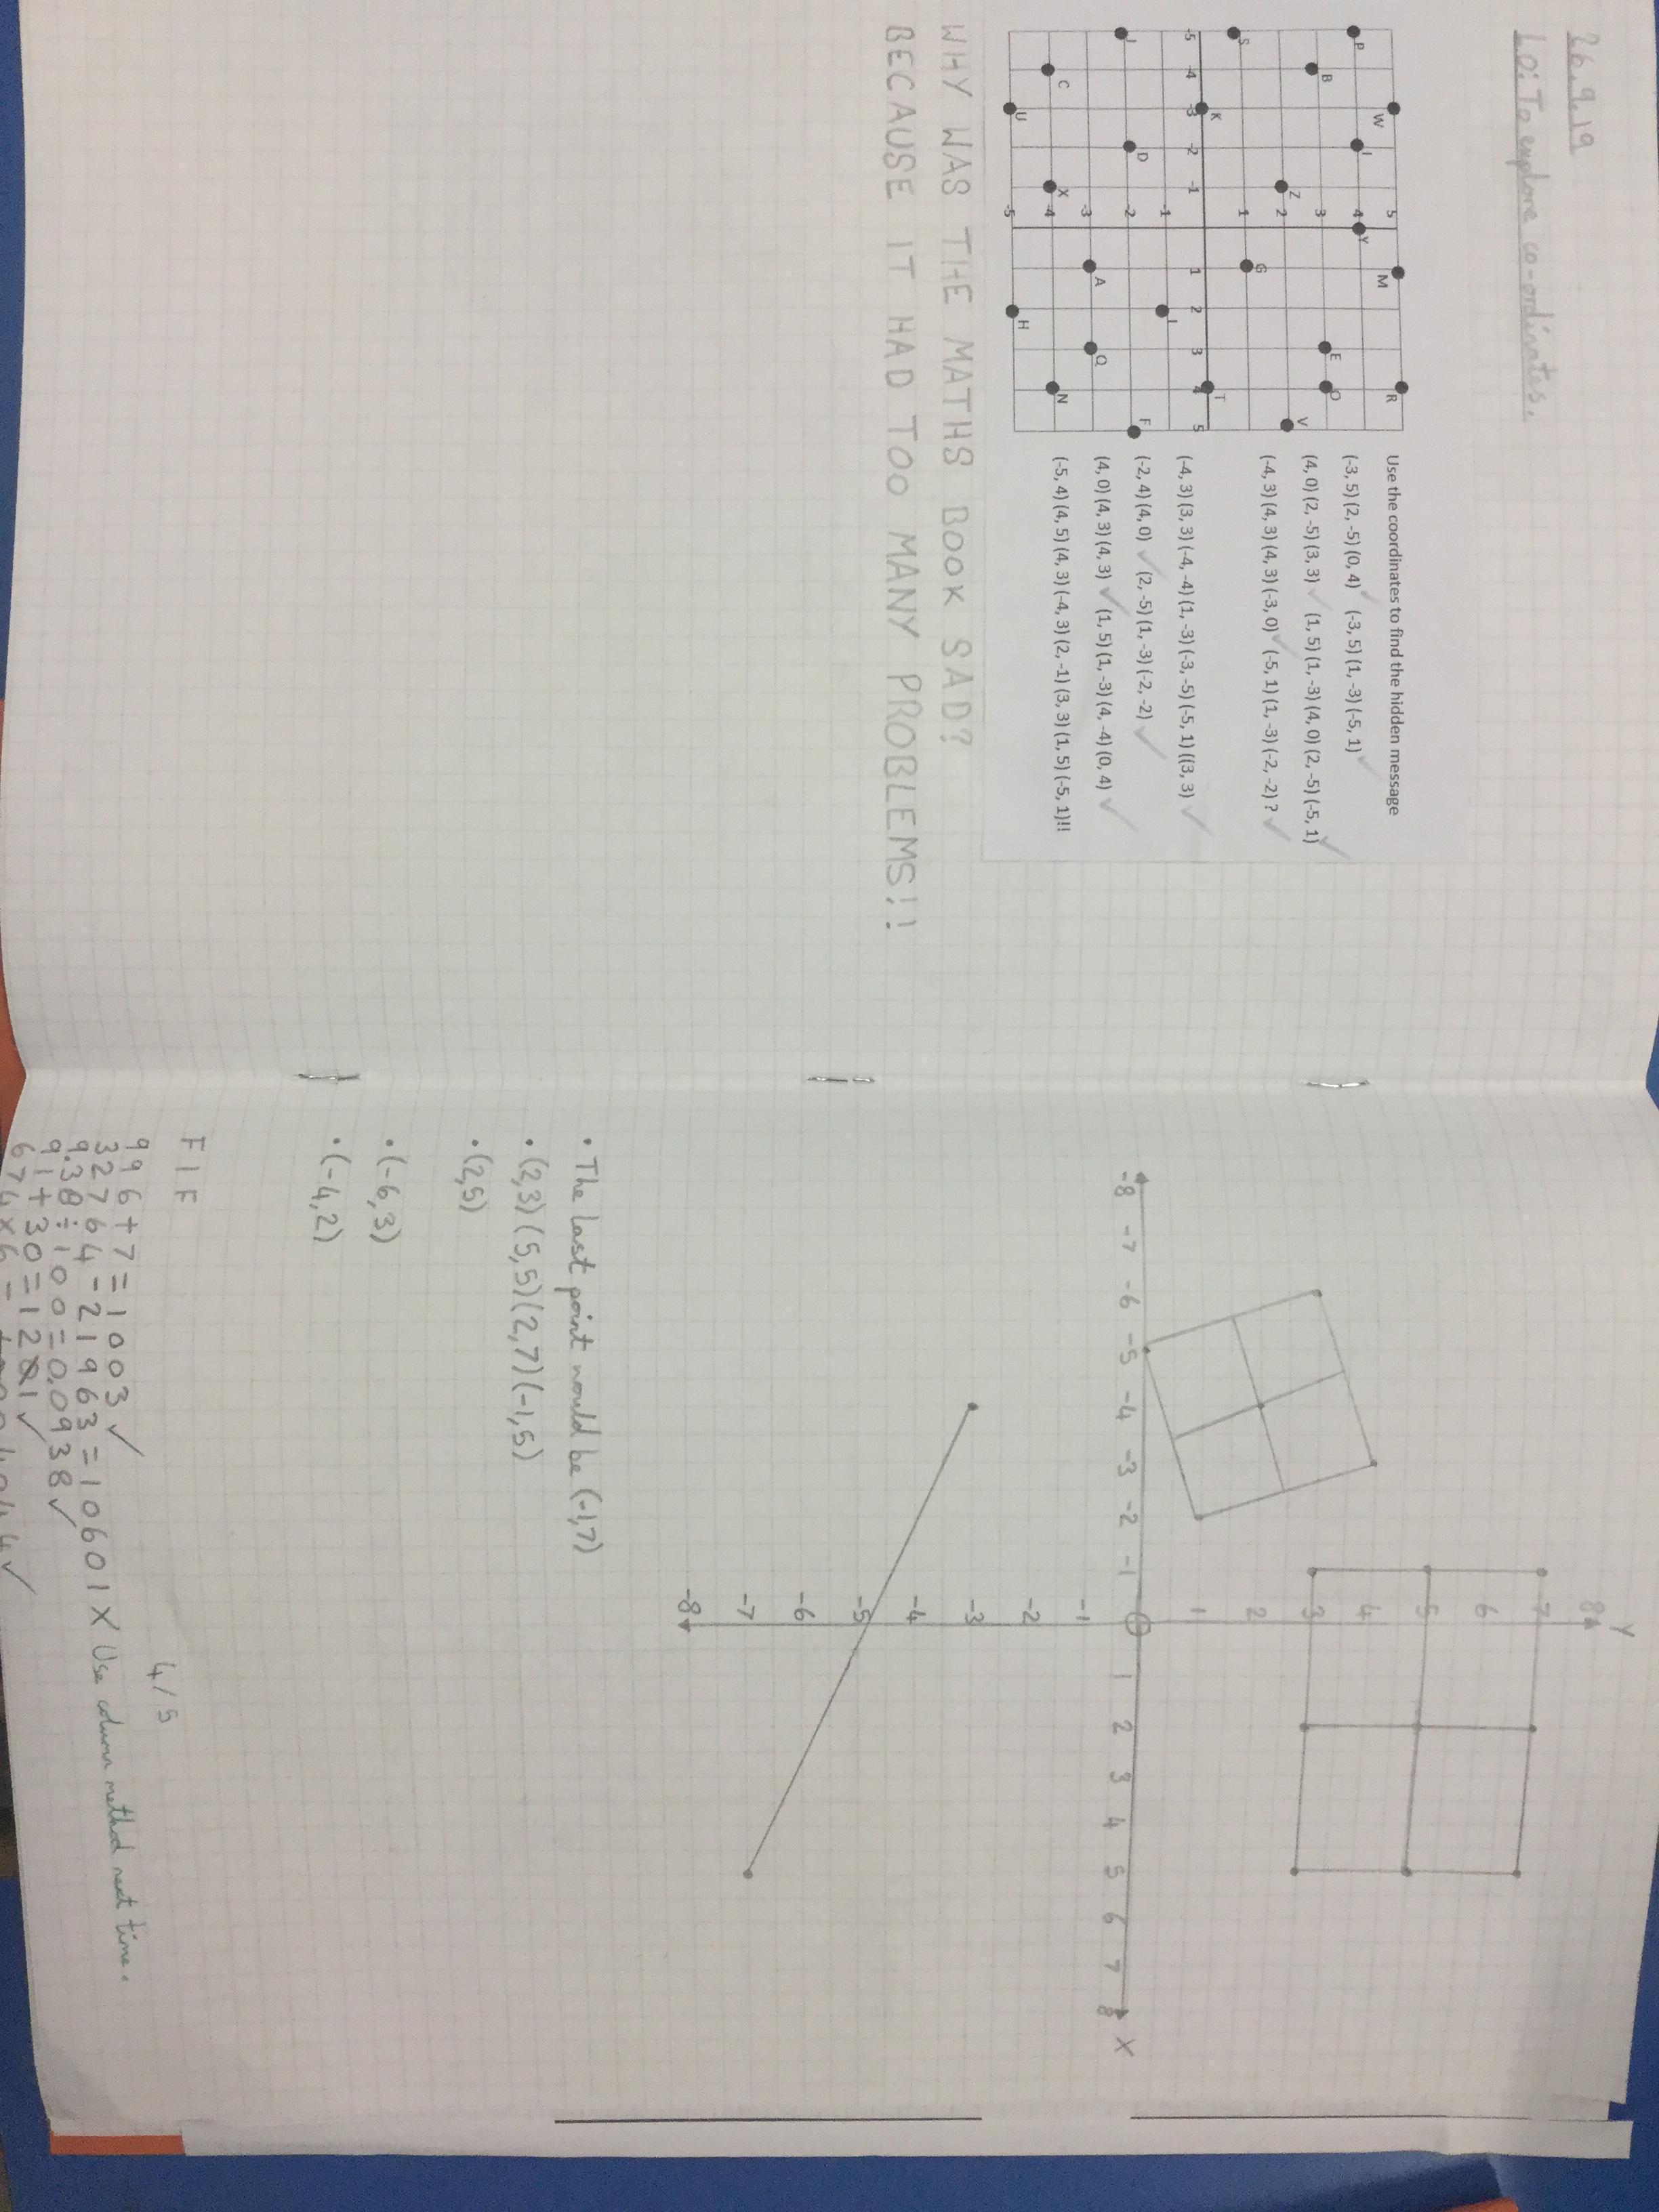 26.9.19
LO: To explore co-ordinates.
Use the coordinates to find the hidden message
(-3, 5) (2, -5) (0, 4) ✓ (-3, 5) (1, -3) (-5, 1) ✓
(4, 0) (2, -5) (3, 3) ✓ (1, 5) (1, -3) (4, 0) (2, -5) (-5, 1) ✓
(-4, 3) (4, 3) (4, 3) (-3, 0) ✓ (-5, 1) (1, -3) (-2, -2) ? ✓
(-4, 3) (3, 3) (-4, -4) (1, -3) (-3, -5) (-5, 1) ((3, 3) ✓
(-2, 4) (4, 0) ✓ (2, -5) (1, -3) (-2, -2) ✓
(4, 0) (4, 3) (4, 3) ✓ (1, 5) (1, -3) (4, -4) (0, 4) ✓
(-5, 4) (4, 5) (4, 3) (-4, 3) (2, -1) (3, 3) (1, 5) (-5, 1)!!
W M R
5
P I Y
4
B E O
3
Z V
2
S G
1
K T
-5 -4 -3 -2 -1 1 2 3 4 5
-1
J L
-2
D F
-3
A Q
-4
C X N
-5
U H
WHY WAS THE MATHS BOOK SAD?
BECAUSE IT HAD TOO MANY PROBLEMS!!
Y
8
7
6
5
4
3
2
1
-8 -7 -6 -5 -4 -3 -2 -1 0 1 2 3 4 5 6 7 8 X
-1
-2
-3
-4
-5
-6
-7
-8
• The last point would be (-1,7)
• (2,3) (5,5) (2,7) (-1,5)
• (2,5)
• (-6,3)
• (-4,2)
FIF
4/5
996+7=1003 ✓
32764-21963=10601 X Use column method next time.
9.38÷100=0.0938 ✓
91+30=121 ✓
674×6=